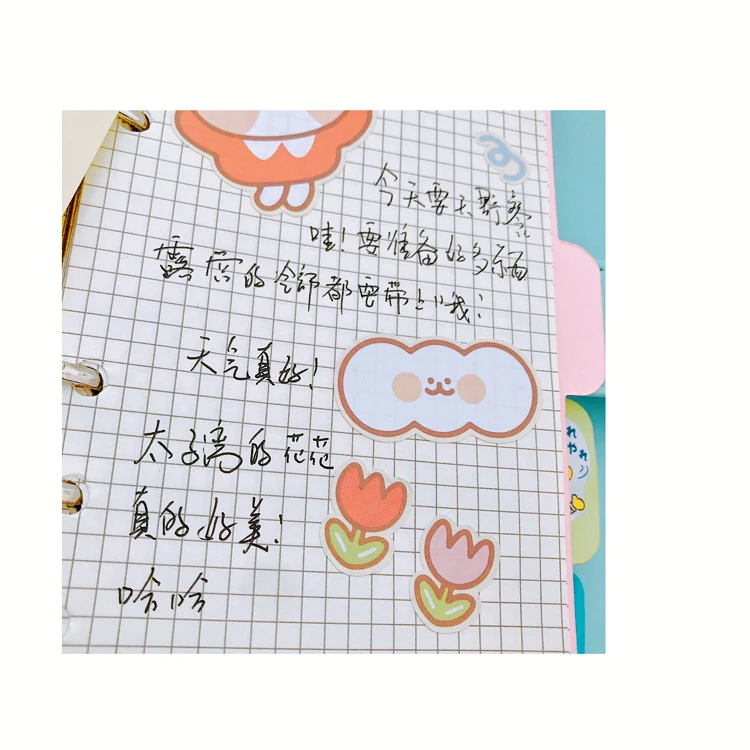 今天要去野餐
哇!要准备好多东西
露营的冷部都要带上哦!
天气真好!
太子湾的花花
真的好美!
哈哈
れ
やれ